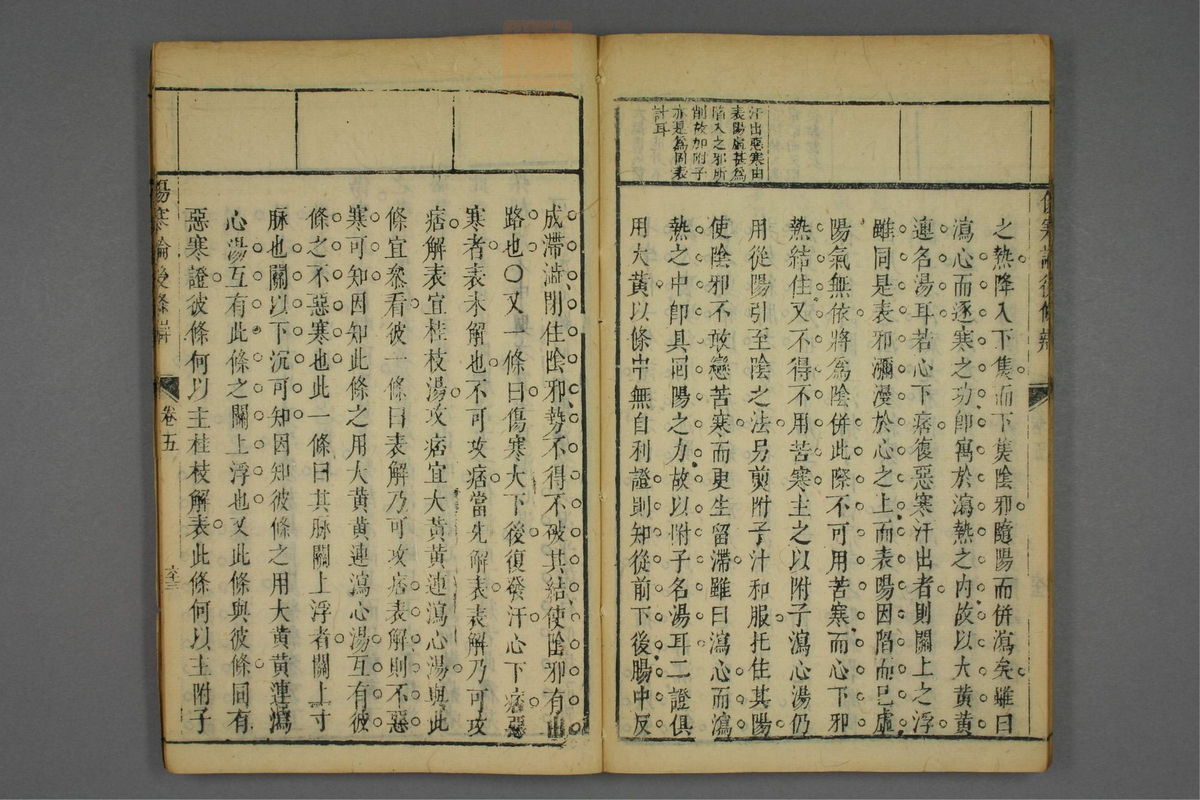 汗出惡寒由
表陽虛甚爲
陷入之邪所
削故加附子
亦是爲固表
計耳
之熱降入下焦而下焦陰邪隨陽而併瀉矣雖曰
瀉心而逐寒之功卽寓於瀉熱之内故以大黃黃
連名湯耳若心下痞復惡寒汗出者則關上之浮
雖同是表邪瀰漫於心之上而表陽因陷而已虛
陽氣無依將爲陰併此際不可用苦寒而心下邪
熱結住又不得不用苦寒主之以附子瀉心湯仍
用從陽引至陰之法另煎附子汁和服托住其陽
使陰邪不敢戀苦寒而更生留滯雖曰瀉心而瀉
熱之中卽具回陽之力故以附子名湯耳二證俱
用大黃以條中無自利證則知從前下後腸中反
傷寒論後條辨
成滯澁閉住陰邪勢不得不破其結使陰邪有出
路也〇又一條曰傷寒大下後復發汗心下痞惡
寒者表未解也不可攻痞當先解表表解乃可攻
痞解表宜桂枝湯攻痞宜大黃黃連瀉心湯與此
條宜叅看彼一條曰表解乃可攻痞表解則不惡
寒可知因知此條之用大黃黃連瀉心湯互有彼
條之不惡寒也此一條曰其脉關上浮者關上寸
脉也關以下沉可知因知彼條之用大黃黃連瀉
心湯互有此條之關上浮也又此條與彼條同有
惡寒證彼條何以主桂枝解表此條何以主附子
傷寒論後條辨
卷五